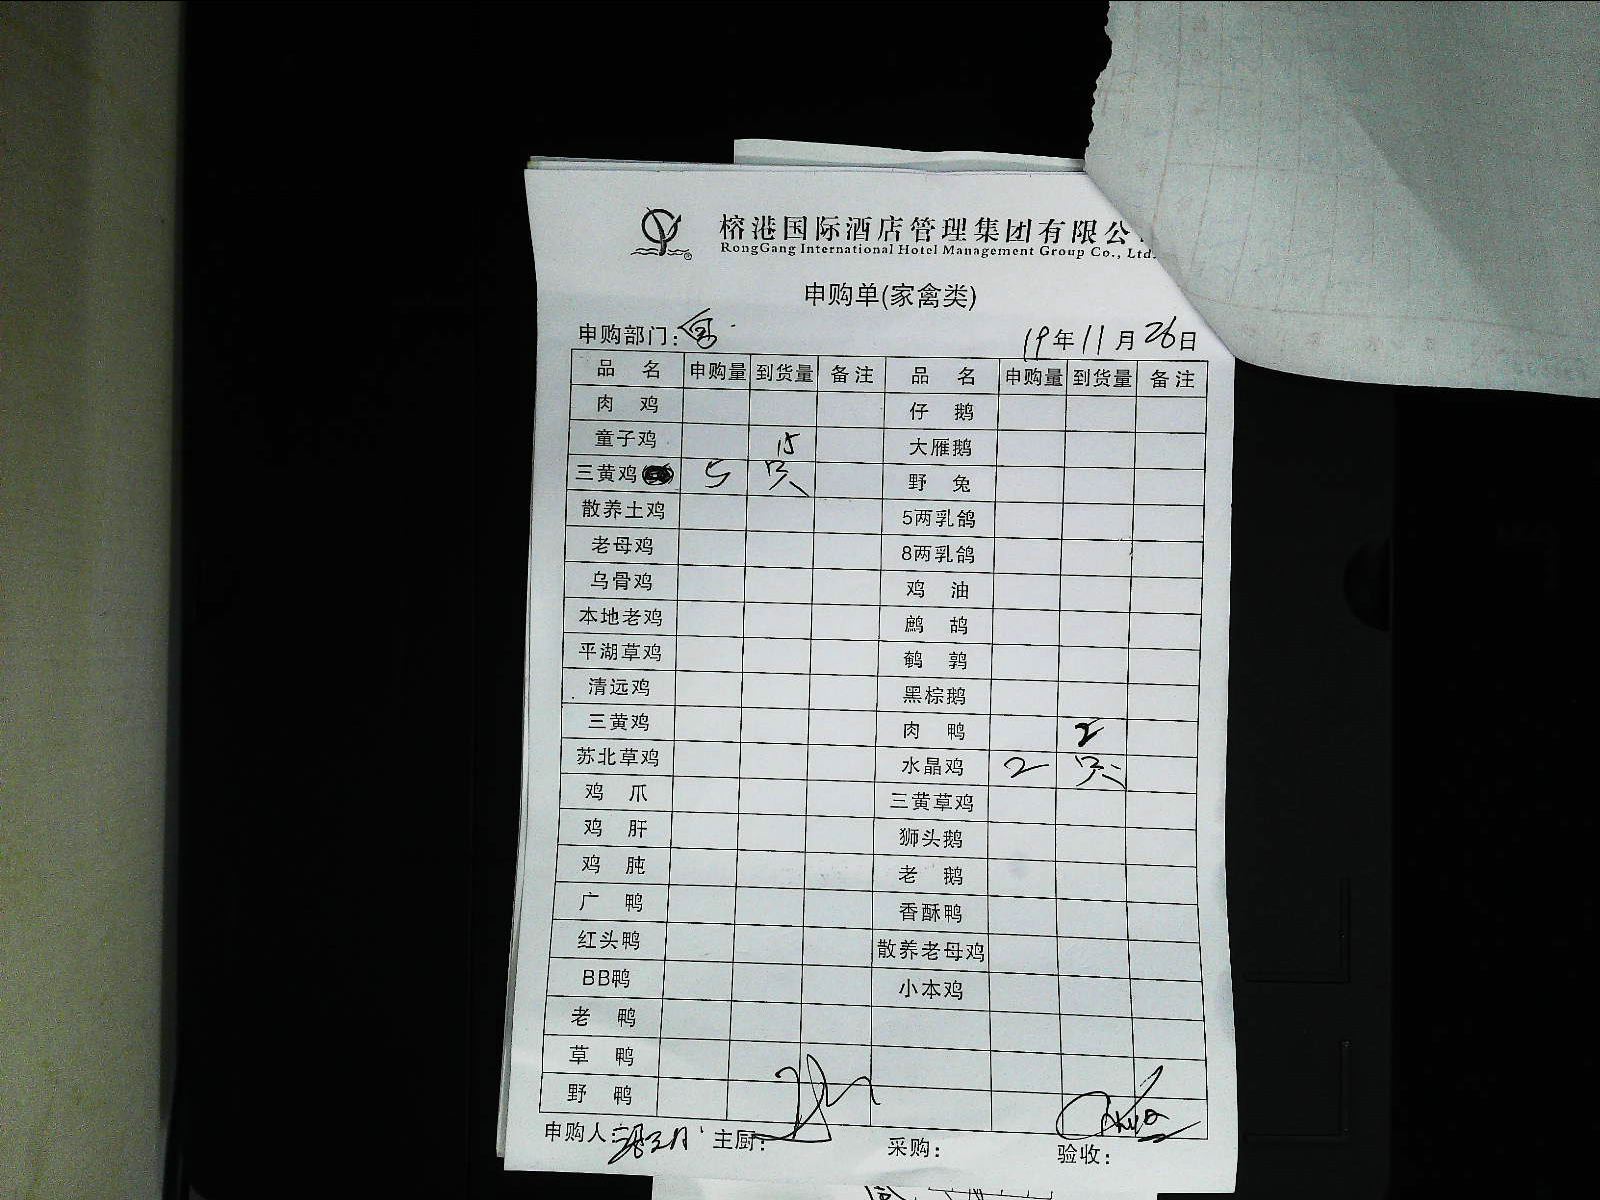 榕港国际酒店管理集团有限公
RongGang International Hotel Management Group Co., Ltd.
申购单(家禽类)
申购部门: 19年11月26日
品 名 申购量 到货量 备注 品 名 申购量 到货量 备注
肉 鸡 仔 鹅
童子鸡 15 大雁鹅
三黄鸡 5 只 野 兔
散养土鸡 5两乳鸽
老母鸡 8两乳鸽
乌骨鸡 鸡 油
本地老鸡 鹧 鸪
平湖草鸡 鹌 鹑
清远鸡 黑棕鹅
三黄鸡 肉 鸭 2
苏北草鸡 水晶鸡 2 只
鸡 爪 三黄草鸡
鸡 肝 狮头鹅
鸡 肫 老 鹅
广 鸭 香酥鸭
红头鸭 散养老母鸡
BB鸭 小本鸡
老 鸭
草 鸭
野 鸭
申购人: 主厨: 采购: 验收: